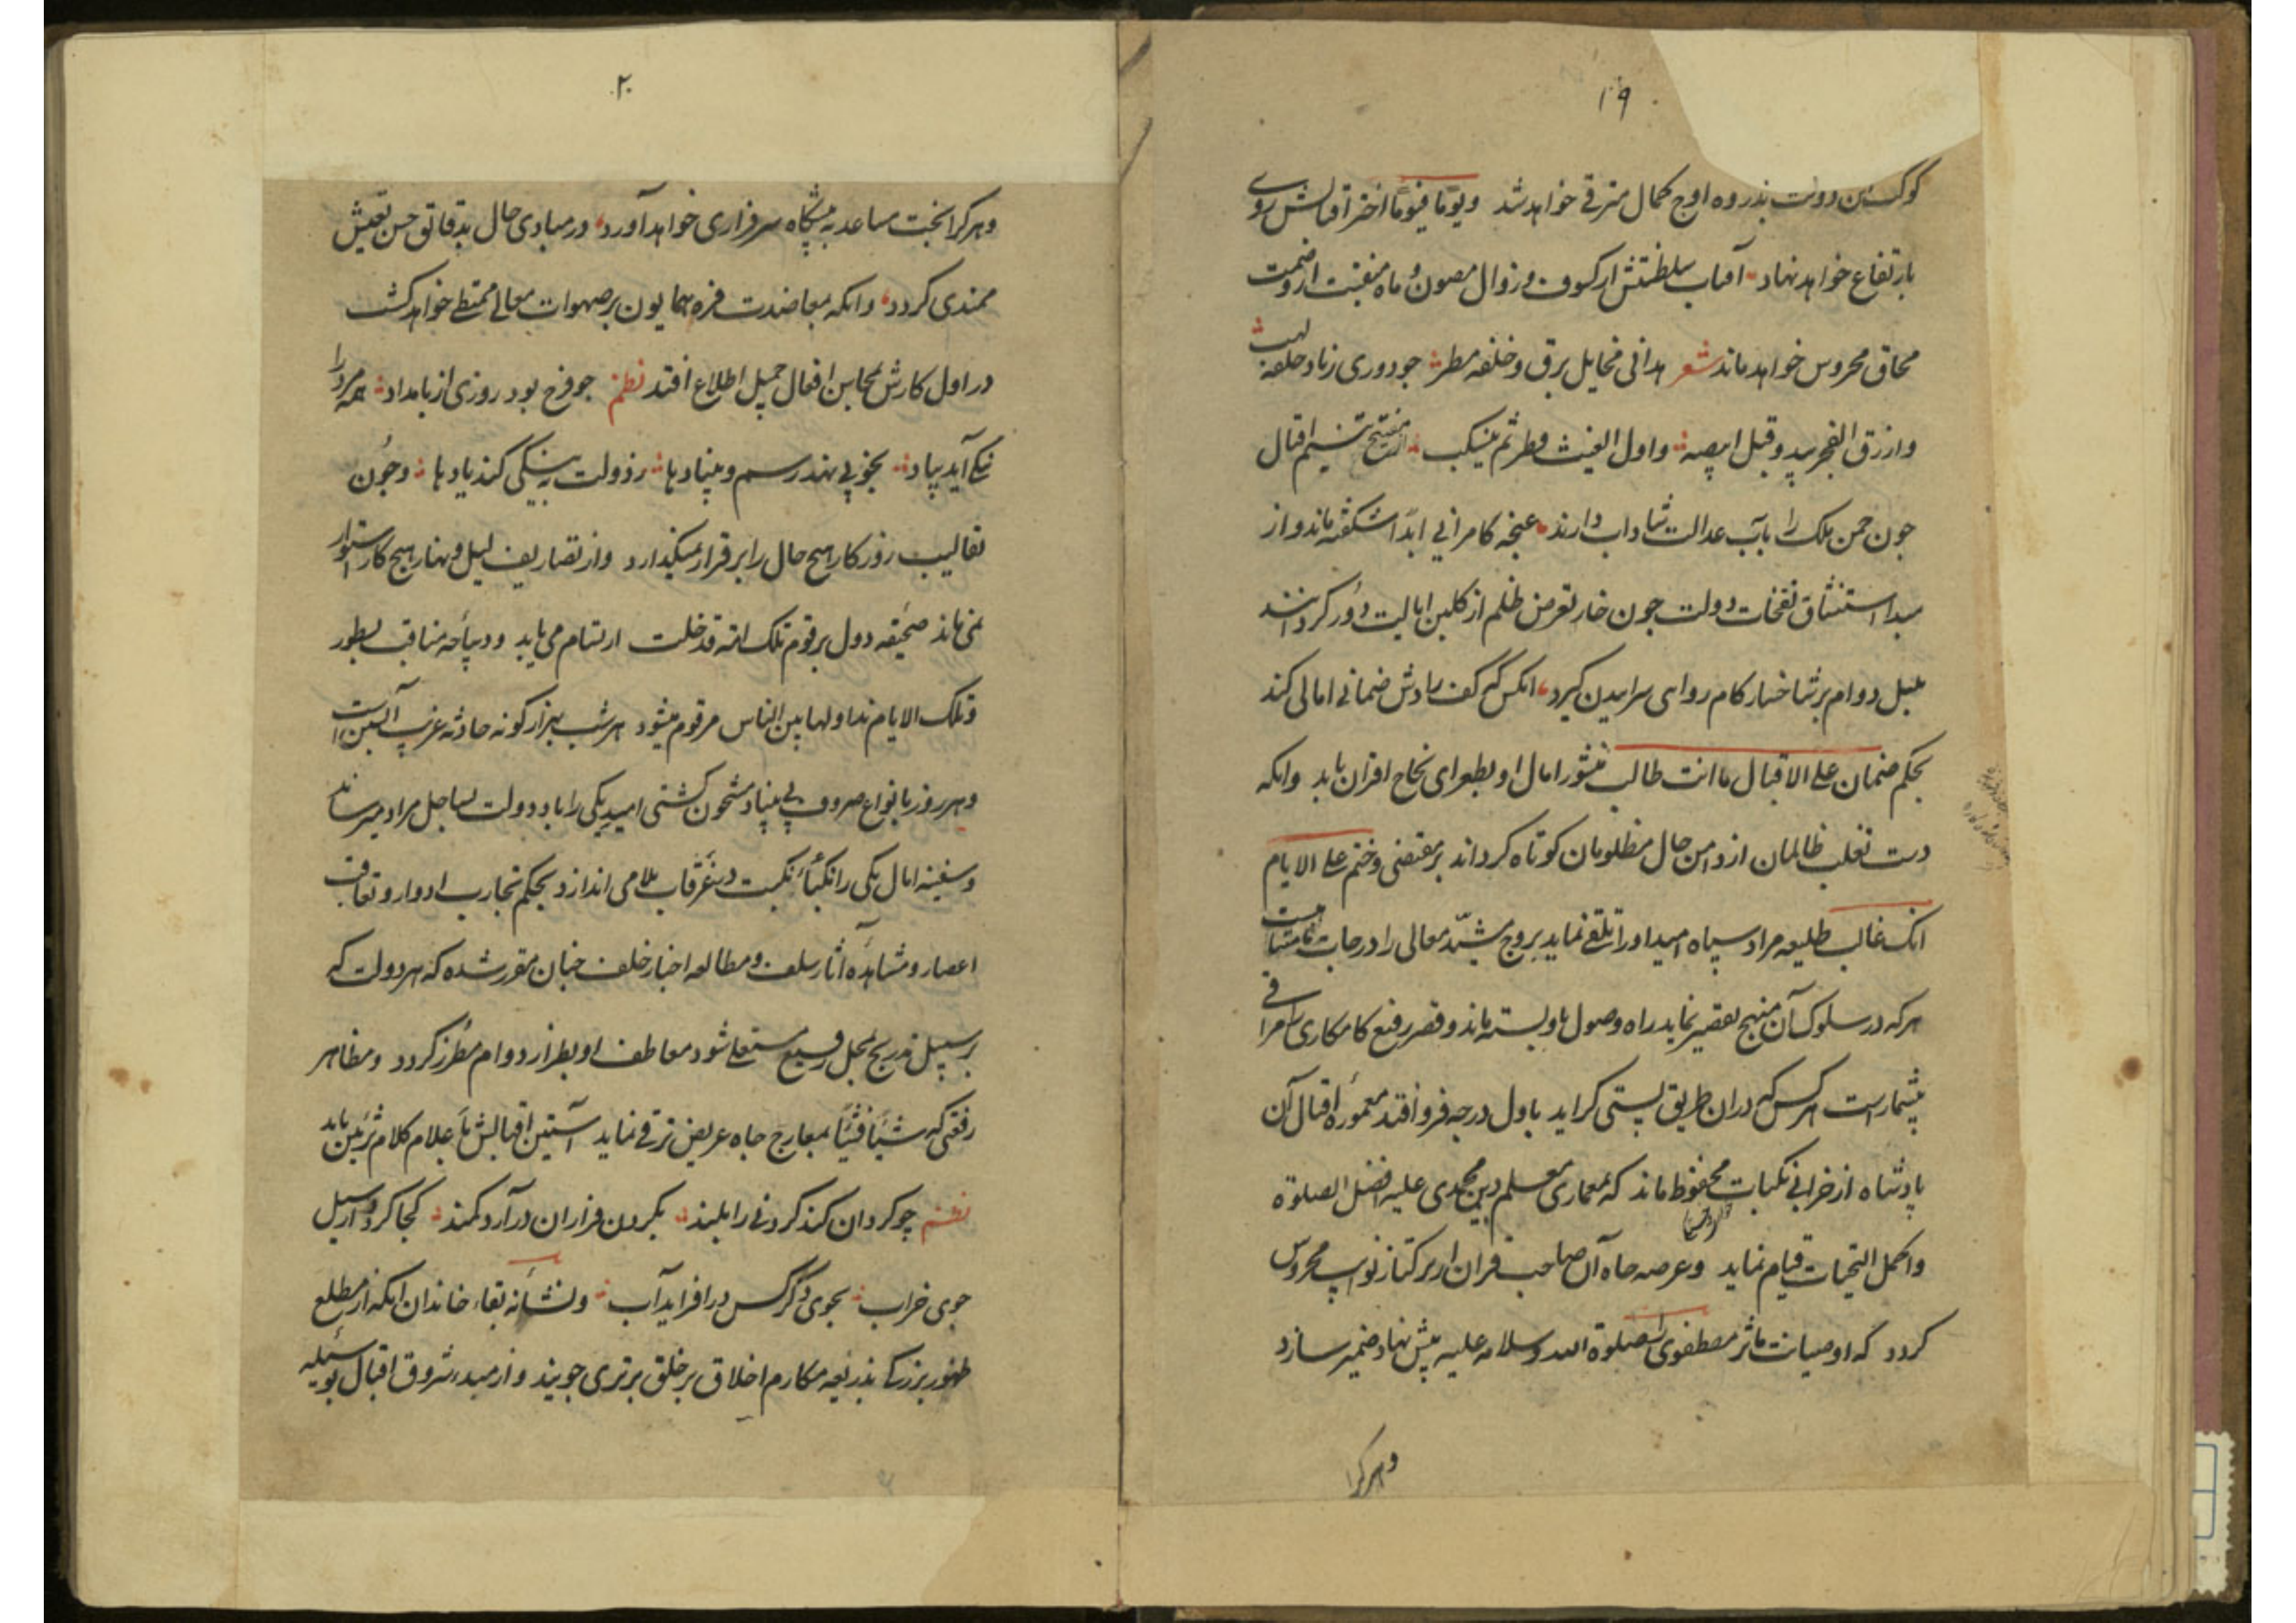 ۱۹
کوکب این دولت بذروه اوج کمال مترقی خواهد شد ویوما فیوما اختر اقبالش روی
بارتفاع خواهد نهاد آفتاب سلطنتش از کسوف و زوال مصون و ماه منقبت از وصمت
محاق محروس خواهد ماند شعر مخایل برق و خلفه مطر جو دوری زناد خلفه لهب
وازرق الفجر یبدو قبل ابیضه و اول الغیث قطر ثم ینسکب از تنسیم اقبال
جون جمن ملک را بآب عدالت شاداب دارند غنجه کامرانی ابدا شکفته ماند و از
استنشاق نفحات دولت جون خار تعرض ظلم از کلبن ایالت دور کردانند
بلبل دوام بر شاخسار کام روایی سراییدن کیرد انکس که کف رادش ضمانی امالی کند
بحکم ضمان علی الاقبال ما انت طالب منشور امال او بطغرای نجاح اقتران یابد وانکه
دست تغلب ظالمان از دامن حال مظلومان کوتاه کرداند بر مقتضی و ختم علی الایام
انک غالب طلیعه مراد سپاه امید او را تلقی نماید بروج مشید معالی را درجات
هرکه در سلوک آن منهج تقصیر نماید راه وصول باو بسته ماند و قصر رفیع کامکاری را مراقی
بیشمارست هر کس که دران طریق بستی کراید باول درجه فرو افتد معموره اقبال آن
پادشاه از خرابی نکبات محفوظ ماند که بمعماری معلم دین محمدی علیه افضل الصلوة
واکمل التحیات قیام نماید وعرصه جاه آن صاحب قران از نوایب محروس
کردد که او صیانت ماثر مصطفوی صلوة الله وسلامه علیه پیش نهاد ضمیر سازد
وهرکرا
۲۰
وهرکرا بخت مساعد به پیشکاه سرفرازی خواهد آورد در مبادی حال بدقائق حسن تعیش
مهتدی کردد وانکه بمعاضدت فره همایون بر صهوات معالی ممتطی خواهد کشت
در اول کارش بمحاسن افعال جمیل اطلاع افتد نظم جو فرخ بود روزی از بامداد همه مرد را
نیکی آید بیاد بخوبی نهد رسم و بنیادها ز دولت به نیکی کند یادها و جون
تقالیب روزکار هیج حال را برقرار نمیکذارد واز تصاریف لیل و نهار هیج کار استوار
نمی ماند صحیفه دول برقوم تلک امة قد خلت ارتسام می یابد و دیباجه مناقب بسطور
وتلک الایام نداولها بین الناس مرقوم میشود هر شب بهزار کونه حادثه غریب آبستن است
وهر روز بانواع صروف بی بنیاد مشحون کشتی امید یکی را باد دولت بساحل مراد میرساند
وسفینه امال یکی را نکباء نکبت در غرقاب بلا می اندازد و بحکم تجارب ادوار و تعاقب
اعصار و مشاهده آثار سلف و مطالعه اخبار خلف جنان مقرر شده که هر دولت که
بر سبیل تدریج بمحل رفیع مستعلی شود معاطف او بطراز دوام مطرز کردد ومظاهر
رفعتی که شیئا فشیئا بمعارج جاه عریض ترقی نماید آستین اقبالش باعلام کلام تزیین یابد
نظم چو کردان کند کردنی را بلند بکردن فرازان درآرد کمند کجا کردد از سیل
جوی خراب بجوی دکر کس در افزاید آب و نشانه بقاء خاندان انکه از مطلع
ظهور بزرکی بذریعه مکارم اخلاق بر خلق برتری جویند و از مبدء شروق اقبال بوسیله